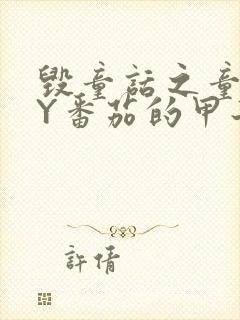 毁童话之童
Y番茄的甲
許倩